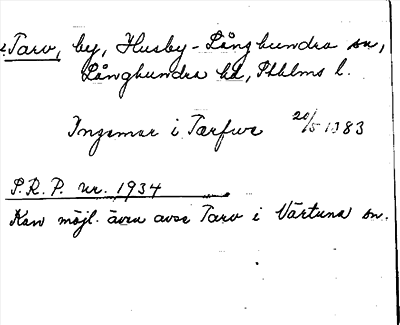 Tarv, by, Husby-Långhundra sn,
Långhundra hd, Sthlms l.
Ingemar i Tarfwe 20/5 1383
S.R.P. nr. 1934
Kan möjl. även avse Tarv i Värtuna sn.